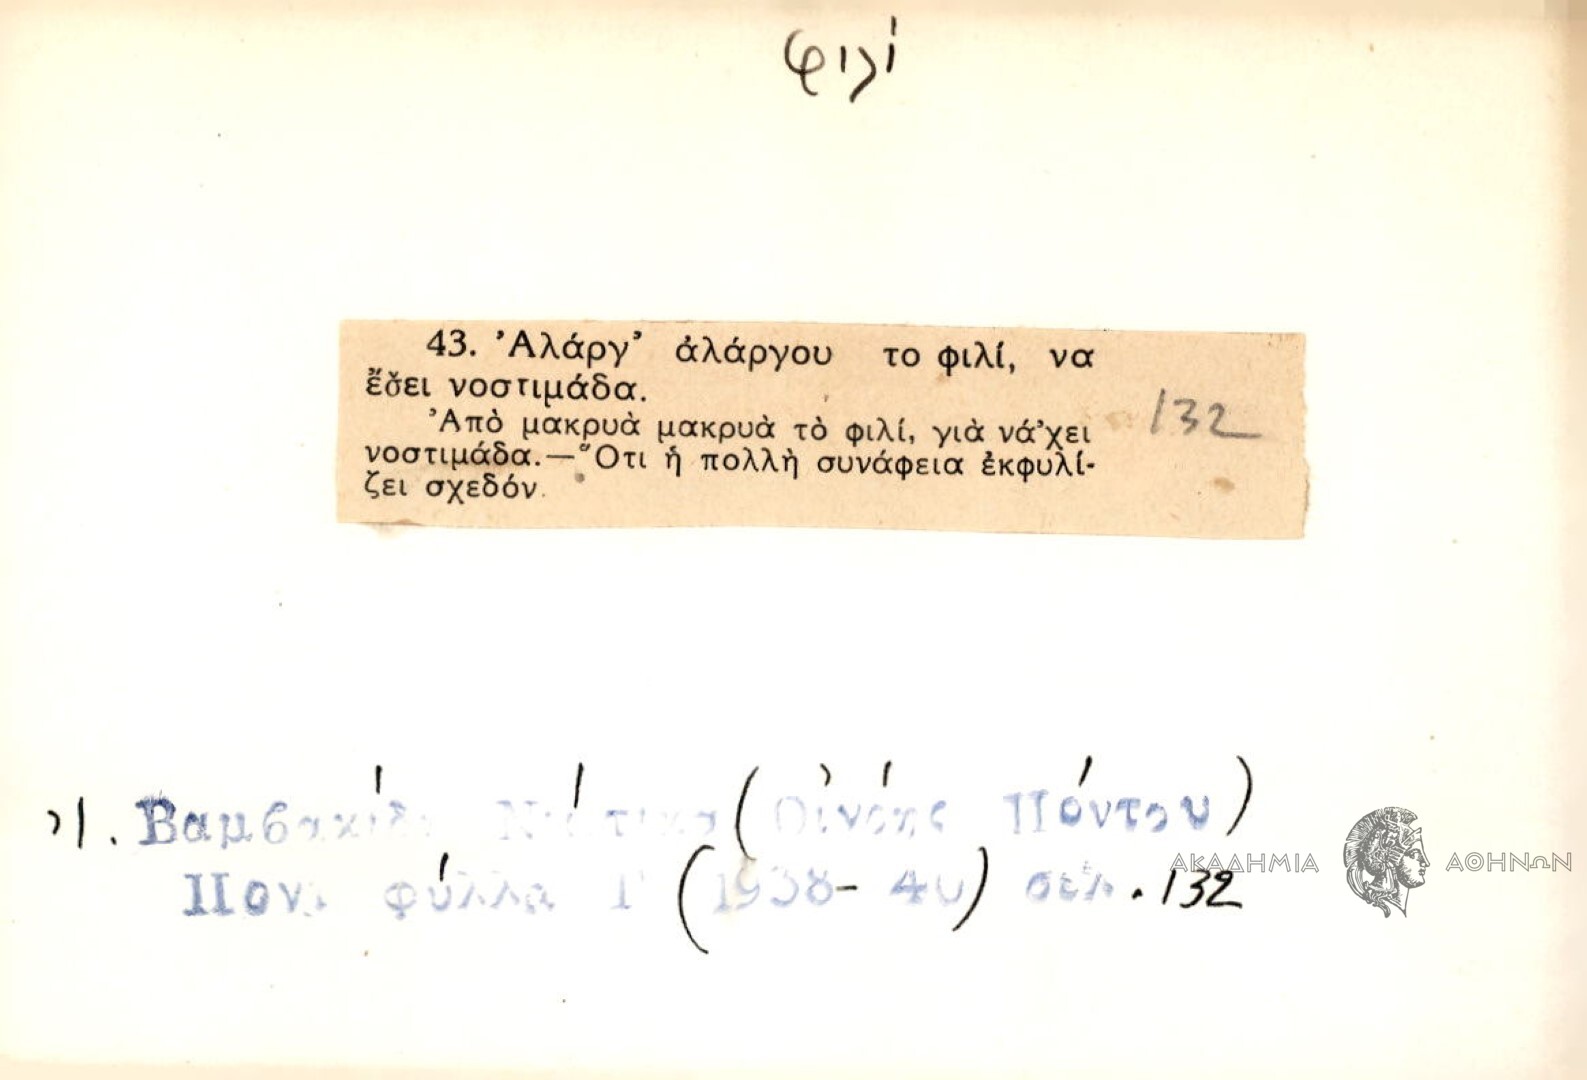 φιλί
43. Ἀλάργ’ ἀλάργου το φιλί, να
ἔσ̌ει νοστιμάδα.
Ἀπὸ μακρυὰ μακρυὰ τὸ φιλί, γιὰ νά’χει
νοστιμάδα.—Ὅτι ἡ πολλὴ συνάφεια ἐκφυλί-
ζει σχεδόν.
132
(Οἰνόης Πόντου)
Ποντ. φύλλα Γ (1938-40) σελ. 132
ΑΚΑΔΗΜΙΑ ΑΘΗΝΩΝ